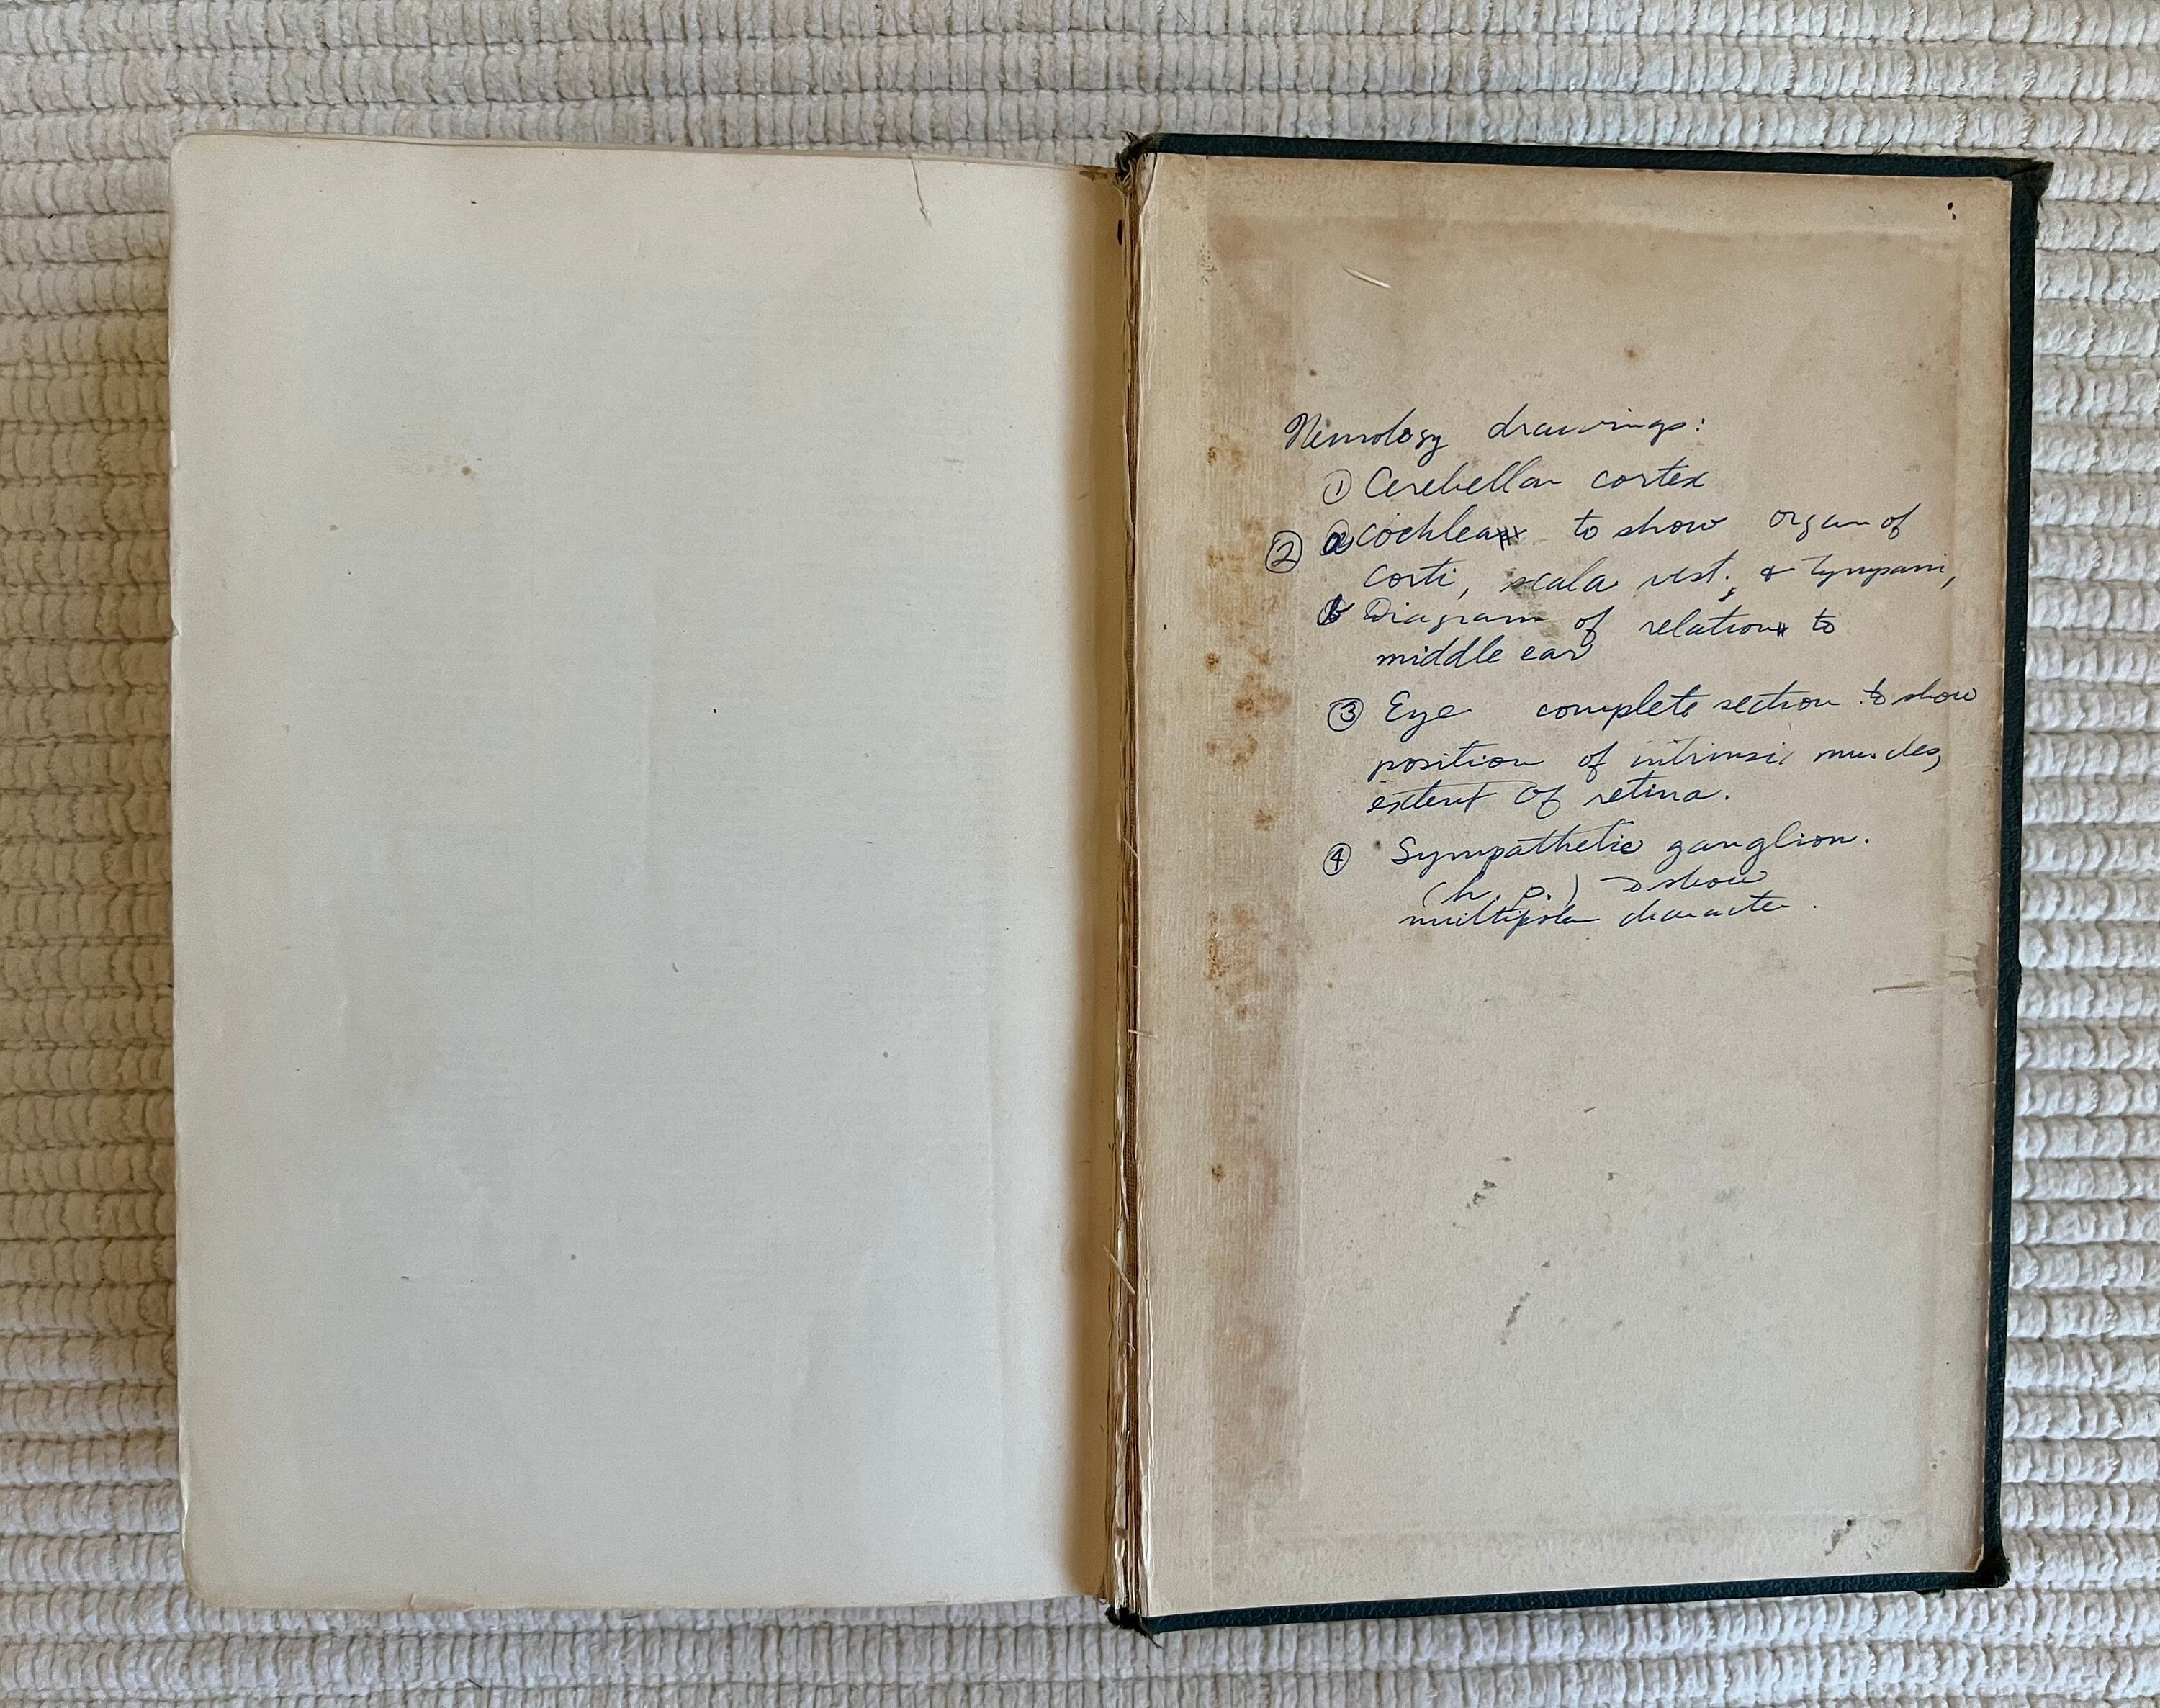 Neurology drawings:
① Cerebellar cortex
② ⓐ Cochlea to show organ of
Corti, scala vest. & tympani,
ⓑ Diagram of relation to
middle ear
③ Eye complete section to show
position of intrinsic muscles,
extent of retina.
④ Sympathetic ganglion.
(h. p.) to show
multipolar character.